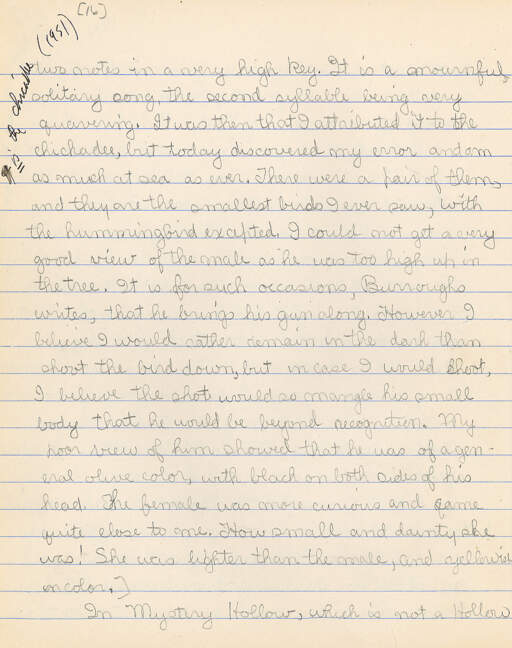 [16]
(1951)
It is the chickadee
two notes in a very high key. It is a mournful,
solitary song, the second syllable being very
quavering. It was then that I attributed it to the
chickadee, but today discovered my error and am
as much at sea as ever. There were a pair of them,
and they are the smallest birds I ever saw, with
the hummingbird excepted. I could not get a very
good view of the male as he was too high up in
the tree. It is for such occasions, Burroughs
writes, that he brings his gun along. However I
believe I would rather remain in the dark than
shoot the bird down, but in case I would shoot,
I believe the shot would so mangle his small
body that he would be beyond recognition. My
poor view of him showed that he was of a gen-
eral olive color, with black on both sides of his
head. The female was more curious and came
quite close to me. How small and dainty she
was! She was lighter than the male, and yellowish
in color.]
In Mystery Hollow, which is not a Hollow